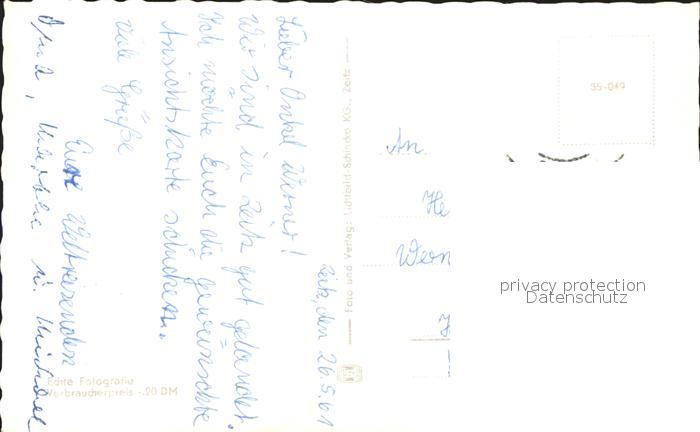 Zeitz, den 26.5.61
Lieber Onkel Werner!
Wir sind in Zeitz gut gelandet.
Ich möchte Euch die gewünschte
Ansichtskarte schicken.
Viele Grüße
Eure Weltreisenden
Oma, u. Michael
Echte Fotografie
Verbraucherpreis -.20 DM
Foto und Verlag: Lichtbild-Schincke KG., Zeitz
35-049
An
He
Wern
privacy protection
Datenschutz